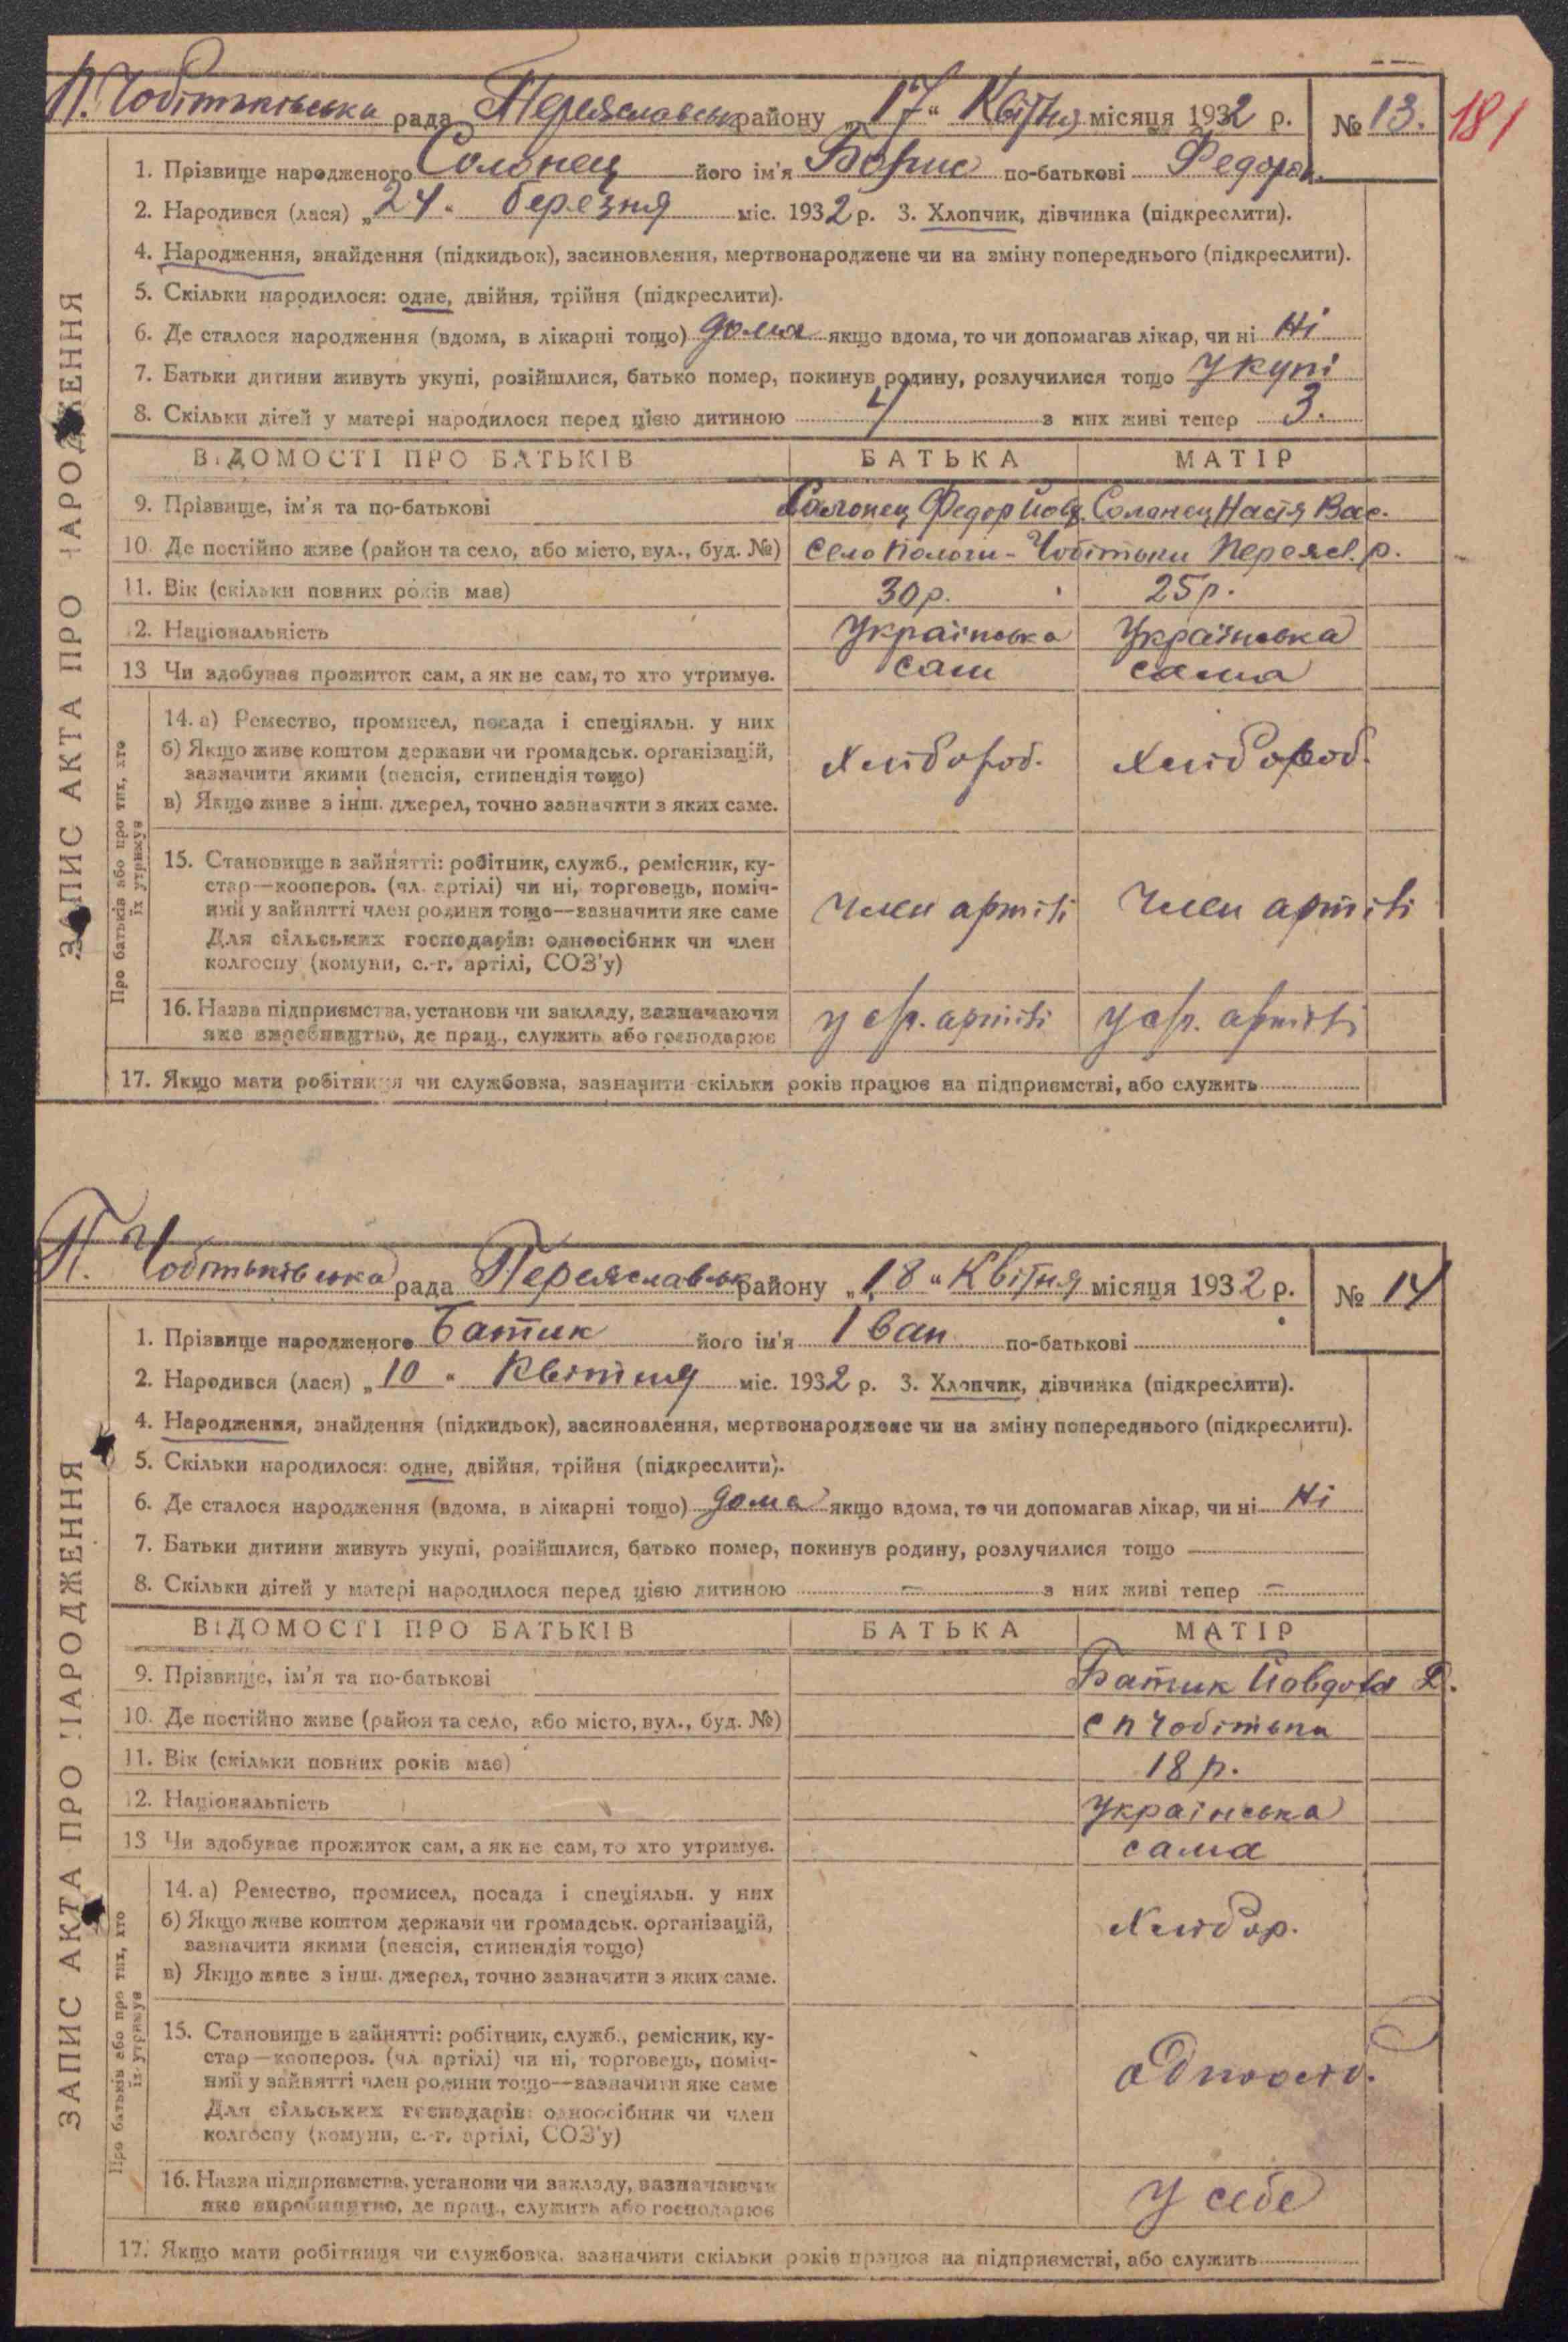 П. Чобітьківська рада Переяславськ району „17“ Квітня місяця 1932 р. № 13. 181
1. Прізвище народженого Солонец його ім'я Борис по-батькові Федоров.
2. Народився (лася) „24“ березня міс. 1932 р. 3. Хлопчик, дівчинка (підкреслити).
4. Народження, знайдення (підкидьок), засиновлення, мертвонароджене чи на зміну попереднього (підкреслити).
5. Скільки народилося: одне, двійня, трійня (підкреслити).
6. Де сталося народження (вдома, в лікарні тощо) дома якщо вдома, то чи допомагав лікар, чи ні Ні
7. Батьки дитини живуть укупі, розійшлися, батько помер, покинув родину, розлучилися тощо Укупі
8. Скільки дітей у матері народилося перед цією дитиною 4 з них живі тепер 3.
ЗАПИС АКТА ПРО НАРОДЖЕННЯ
ВІДОМОСТІ ПРО БАТЬКІВ БАТЬКА МАТІР
9. Прізвище, ім'я та по-батькові Солонец Федор Иовд. Солонец Настя Вас.
10. Де постійно живе (район та село, або місто, вул., буд. №) село Пологи-Чобітьки Переясл. р.
11. Вік (скільки повних років має) 30 р. 25 р.
12. Національність Українська Українська
13 Чи здобуває прожиток сам, а як не сам, то хто утримує. сам сама
Про батьків або про тих, хто
їх утримує
14. а) Ремество, промисел, посада і спеціяльн. у них
б) Якщо живе коштом держави чи громадськ. організацій,
зазначити якими (пенсія, стипендія тощо) Хлібороб. Хлібороб.
в) Якщо живе з інш. джерел, точно зазначити з яких саме.
15. Становище в зайнятті: робітник, служб., ремісник, ку-
стар—кооперов. (чл. артілі) чи ні, торговець, поміч-
ний у зайнятті член родини тощо—зазначити яке саме член артілі член артілі
Для сільських господарів: одноосібник чи член
колгоспу (комуни, с.-г. артілі, СОЗ'у)
16. Назва підприємства, установи чи закладу, зазначаючи
яке виробництво, де прац., служить або господарює у ср. артілі у ср. артілі
17. Якщо мати робітниця чи службовка, зазначити скільки років працює на підприємстві, або служить
П. Чобітьківська рада Переяславськ району „18“ Квітня місяця 1932 р. № 14
1. Прізвище народженого Батик його ім'я Іван по-батькові
2. Народився (лася) „10“ Квітня міс. 1932 р. 3. Хлопчик, дівчинка (підкреслити).
4. Народження, знайдення (підкидьок), засиновлення, мертвонароджене чи на зміну попереднього (підкреслити).
5. Скільки народилося: одне, двійня, трійня (підкреслити).
6. Де сталося народження (вдома, в лікарні тощо) дома якщо вдома, то чи допомагав лікар, чи ні Ні
7. Батьки дитини живуть укупі, розійшлися, батько помер, покинув родину, розлучилися тощо —
8. Скільки дітей у матері народилося перед цією дитиною — з них живі тепер —
ЗАПИС АКТА ПРО НАРОДЖЕННЯ
ВІДОМОСТІ ПРО БАТЬКІВ БАТЬКА МАТІР
9. Прізвище, ім'я та по-батькові Батик Иовдоха
10. Де постійно живе (район та село, або місто, вул., буд. №) с п Чобітьки
11. Вік (скільки повних років має) 18 р.
12. Національність Українська
13 Чи здобуває прожиток сам, а як не сам, то хто утримує. сама
Про батьків або про тих, хто
їх утримує
14. а) Ремество, промисел, посада і спеціяльн. у них
б) Якщо живе коштом держави чи громадськ. організацій,
зазначити якими (пенсія, стипендія тощо) Хлібор.
в) Якщо живе з інш. джерел, точно зазначити з яких саме.
15. Становище в зайнятті: робітник, служб., ремісник, ку-
стар—кооперов. (чл. артілі) чи ні, торговець, поміч-
ний у зайнятті член родини тощо—зазначити яке саме одноосіб.
Для сільських господарів: одноосібник чи член
колгоспу (комуни, с.-г. артілі, СОЗ'у)
16. Назва підприємства, установи чи закладу, зазначаючи
яке виробництво, де прац., служить або господарює у себе
17. Якщо мати робітниця чи службовка, зазначити скільки років працює на підприємстві, або служить